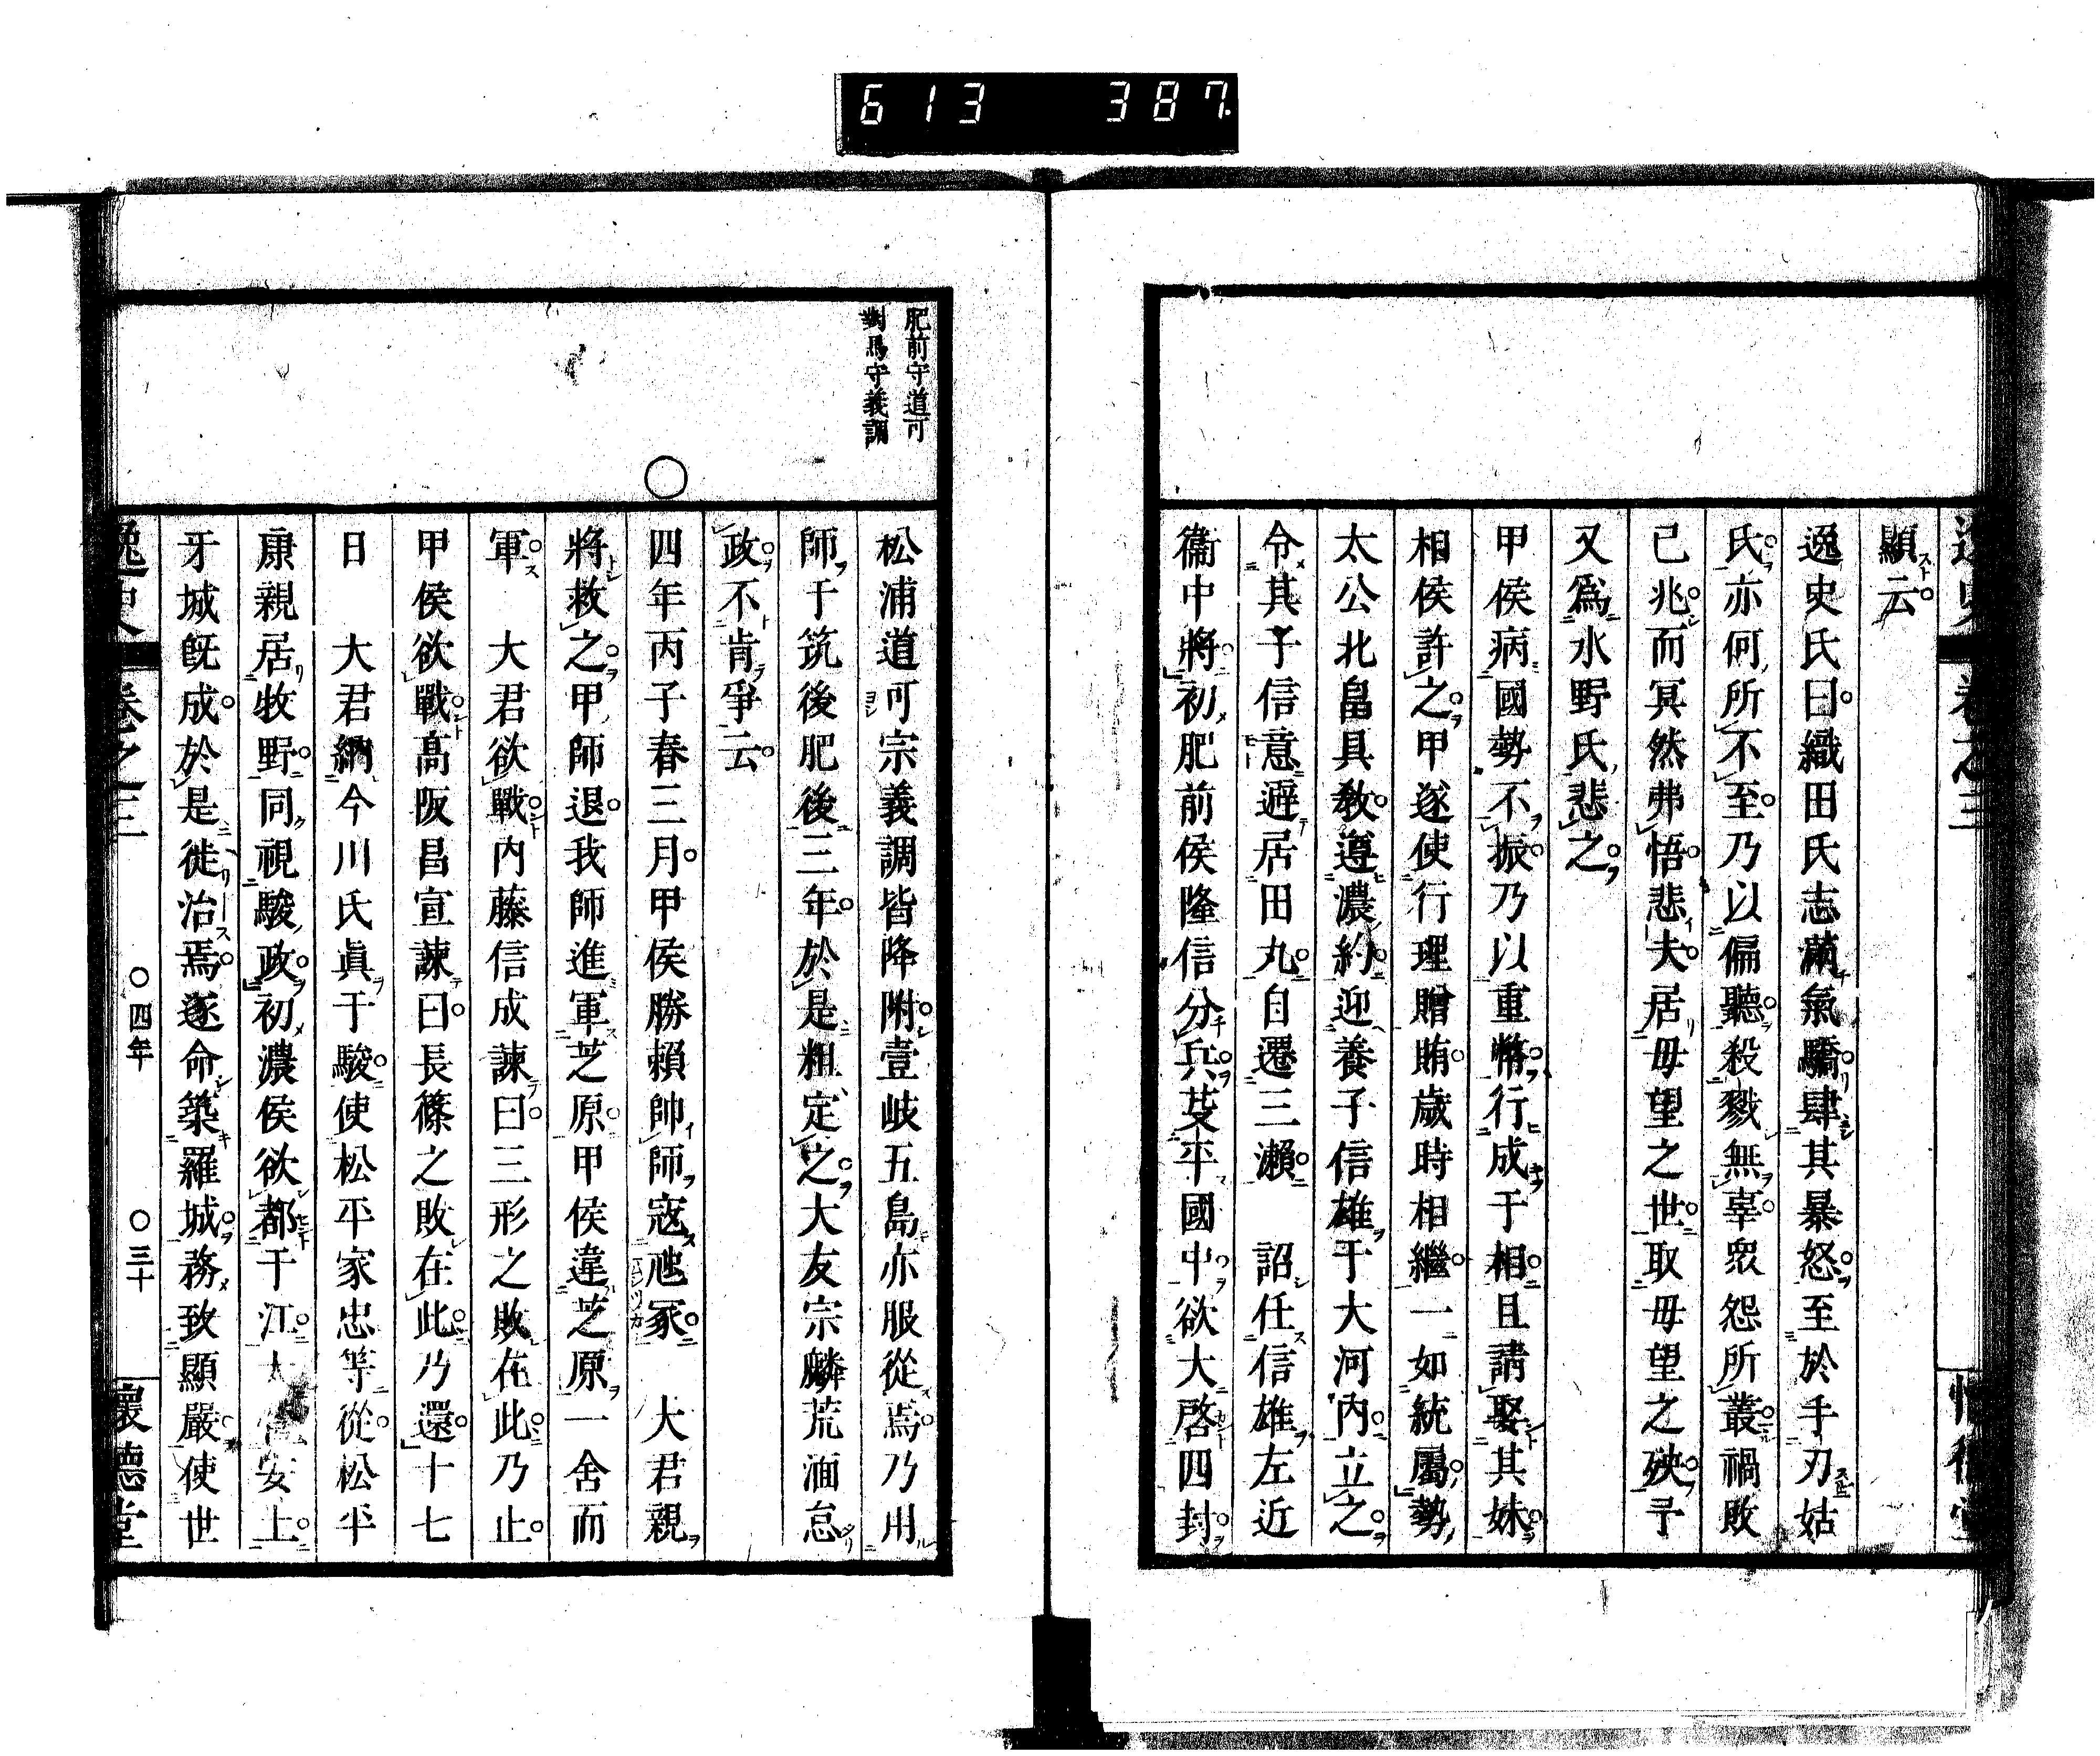 613 387
顯云
逸史氏曰織田氏志滿氣驕肆其暴怒至於手刃姑
氏亦何所不至乃以偏聽殺戮無辜衆怨所叢禍敗
已兆而冥然弗悟悲夫居毋望之世取毋望之殃予
又爲水野氏悲之
甲侯病國勢不振乃以重幣行成于相且請娶其妹
相侯許之甲遂使行理贈賄歲時相繼一如統屬勢
太公北畠具敎遵濃約迎養子信雄于大河內立之
令其子信意遜居田丸自遷三瀨 詔任信雄左近
衞中將初肥前侯隆信分兵芟平國中欲大啓四封
肥前守道可
對馬守義調
松浦道可宗義調皆降附壹岐五島亦服從焉乃用
師于筑後肥後三年於是粗定之大友宗麟荒湎怠
政不肯爭云
○
四年丙子春三月甲侯勝賴帥師寇冢 大君親
將救之甲師退我師進軍芝原甲侯違芝原一舍而
軍 大君欲戰內藤信成諫曰三形之敗在此乃止
甲侯欲戰高阪昌宣諫曰長篠之敗在此乃還十七
日 大君納今川氏眞于駿使松平家忠等從松平
康親居牧野同視駿政初濃侯欲都于江安上
牙城旣成於是徙治焉遂命築羅城務致顯嚴使世
逸史 卷之三 ○四年 ○三十 懷德堂